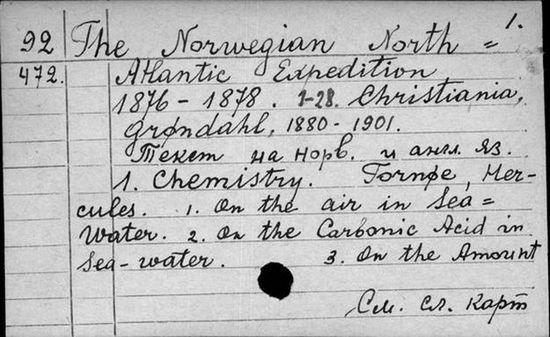 1.
92 The Norwegian North =
472. Atlantic Expedition
1876 - 1878. 1-28. Christiania,
Grøndahl, 1880 - 1901.
Текст на норв. и англ. яз.
1. Chemistry. Tornøe, Her-
cules. 1. On the air in Sea =
Water. 2. On the Carbonic Acid in
Sea-water. 3. On the Amount
См. сл. карт